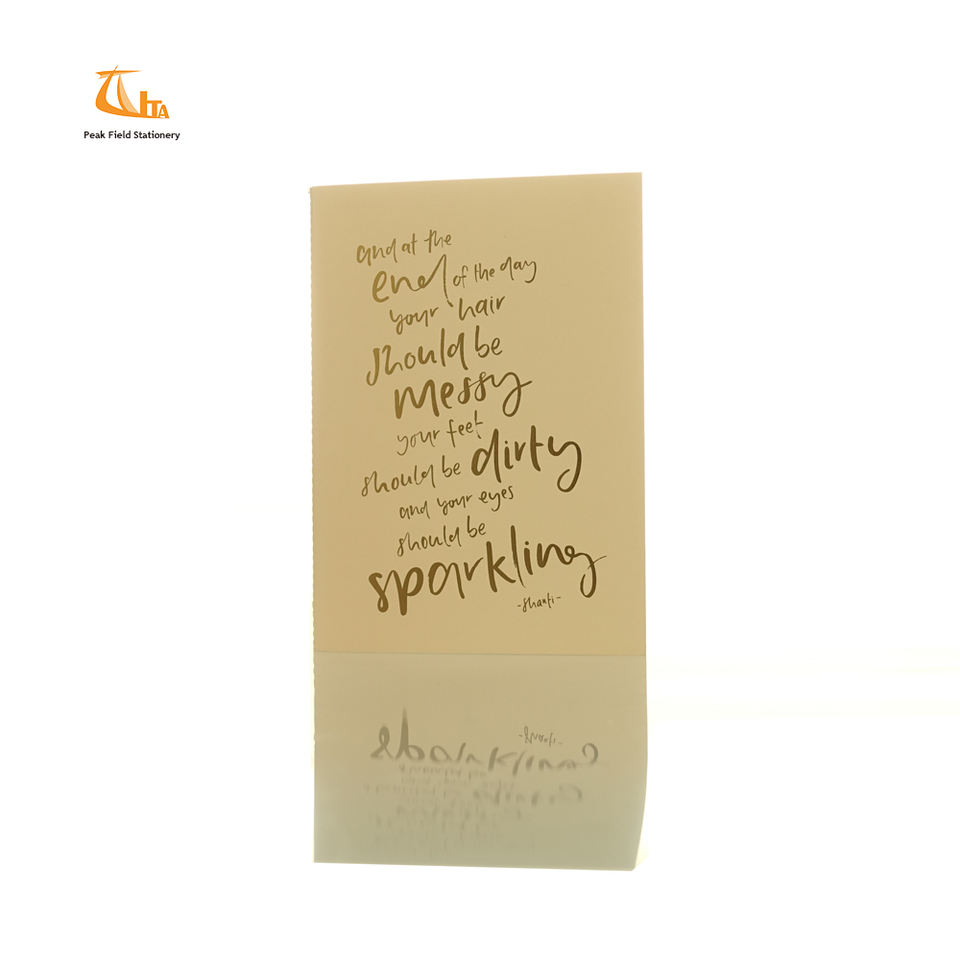 TA
Peak Field Stationery
and at the
end of the day
your hair
should be
messy
your feet
should be dirty
and your eyes
should be
sparkling
-shanti-